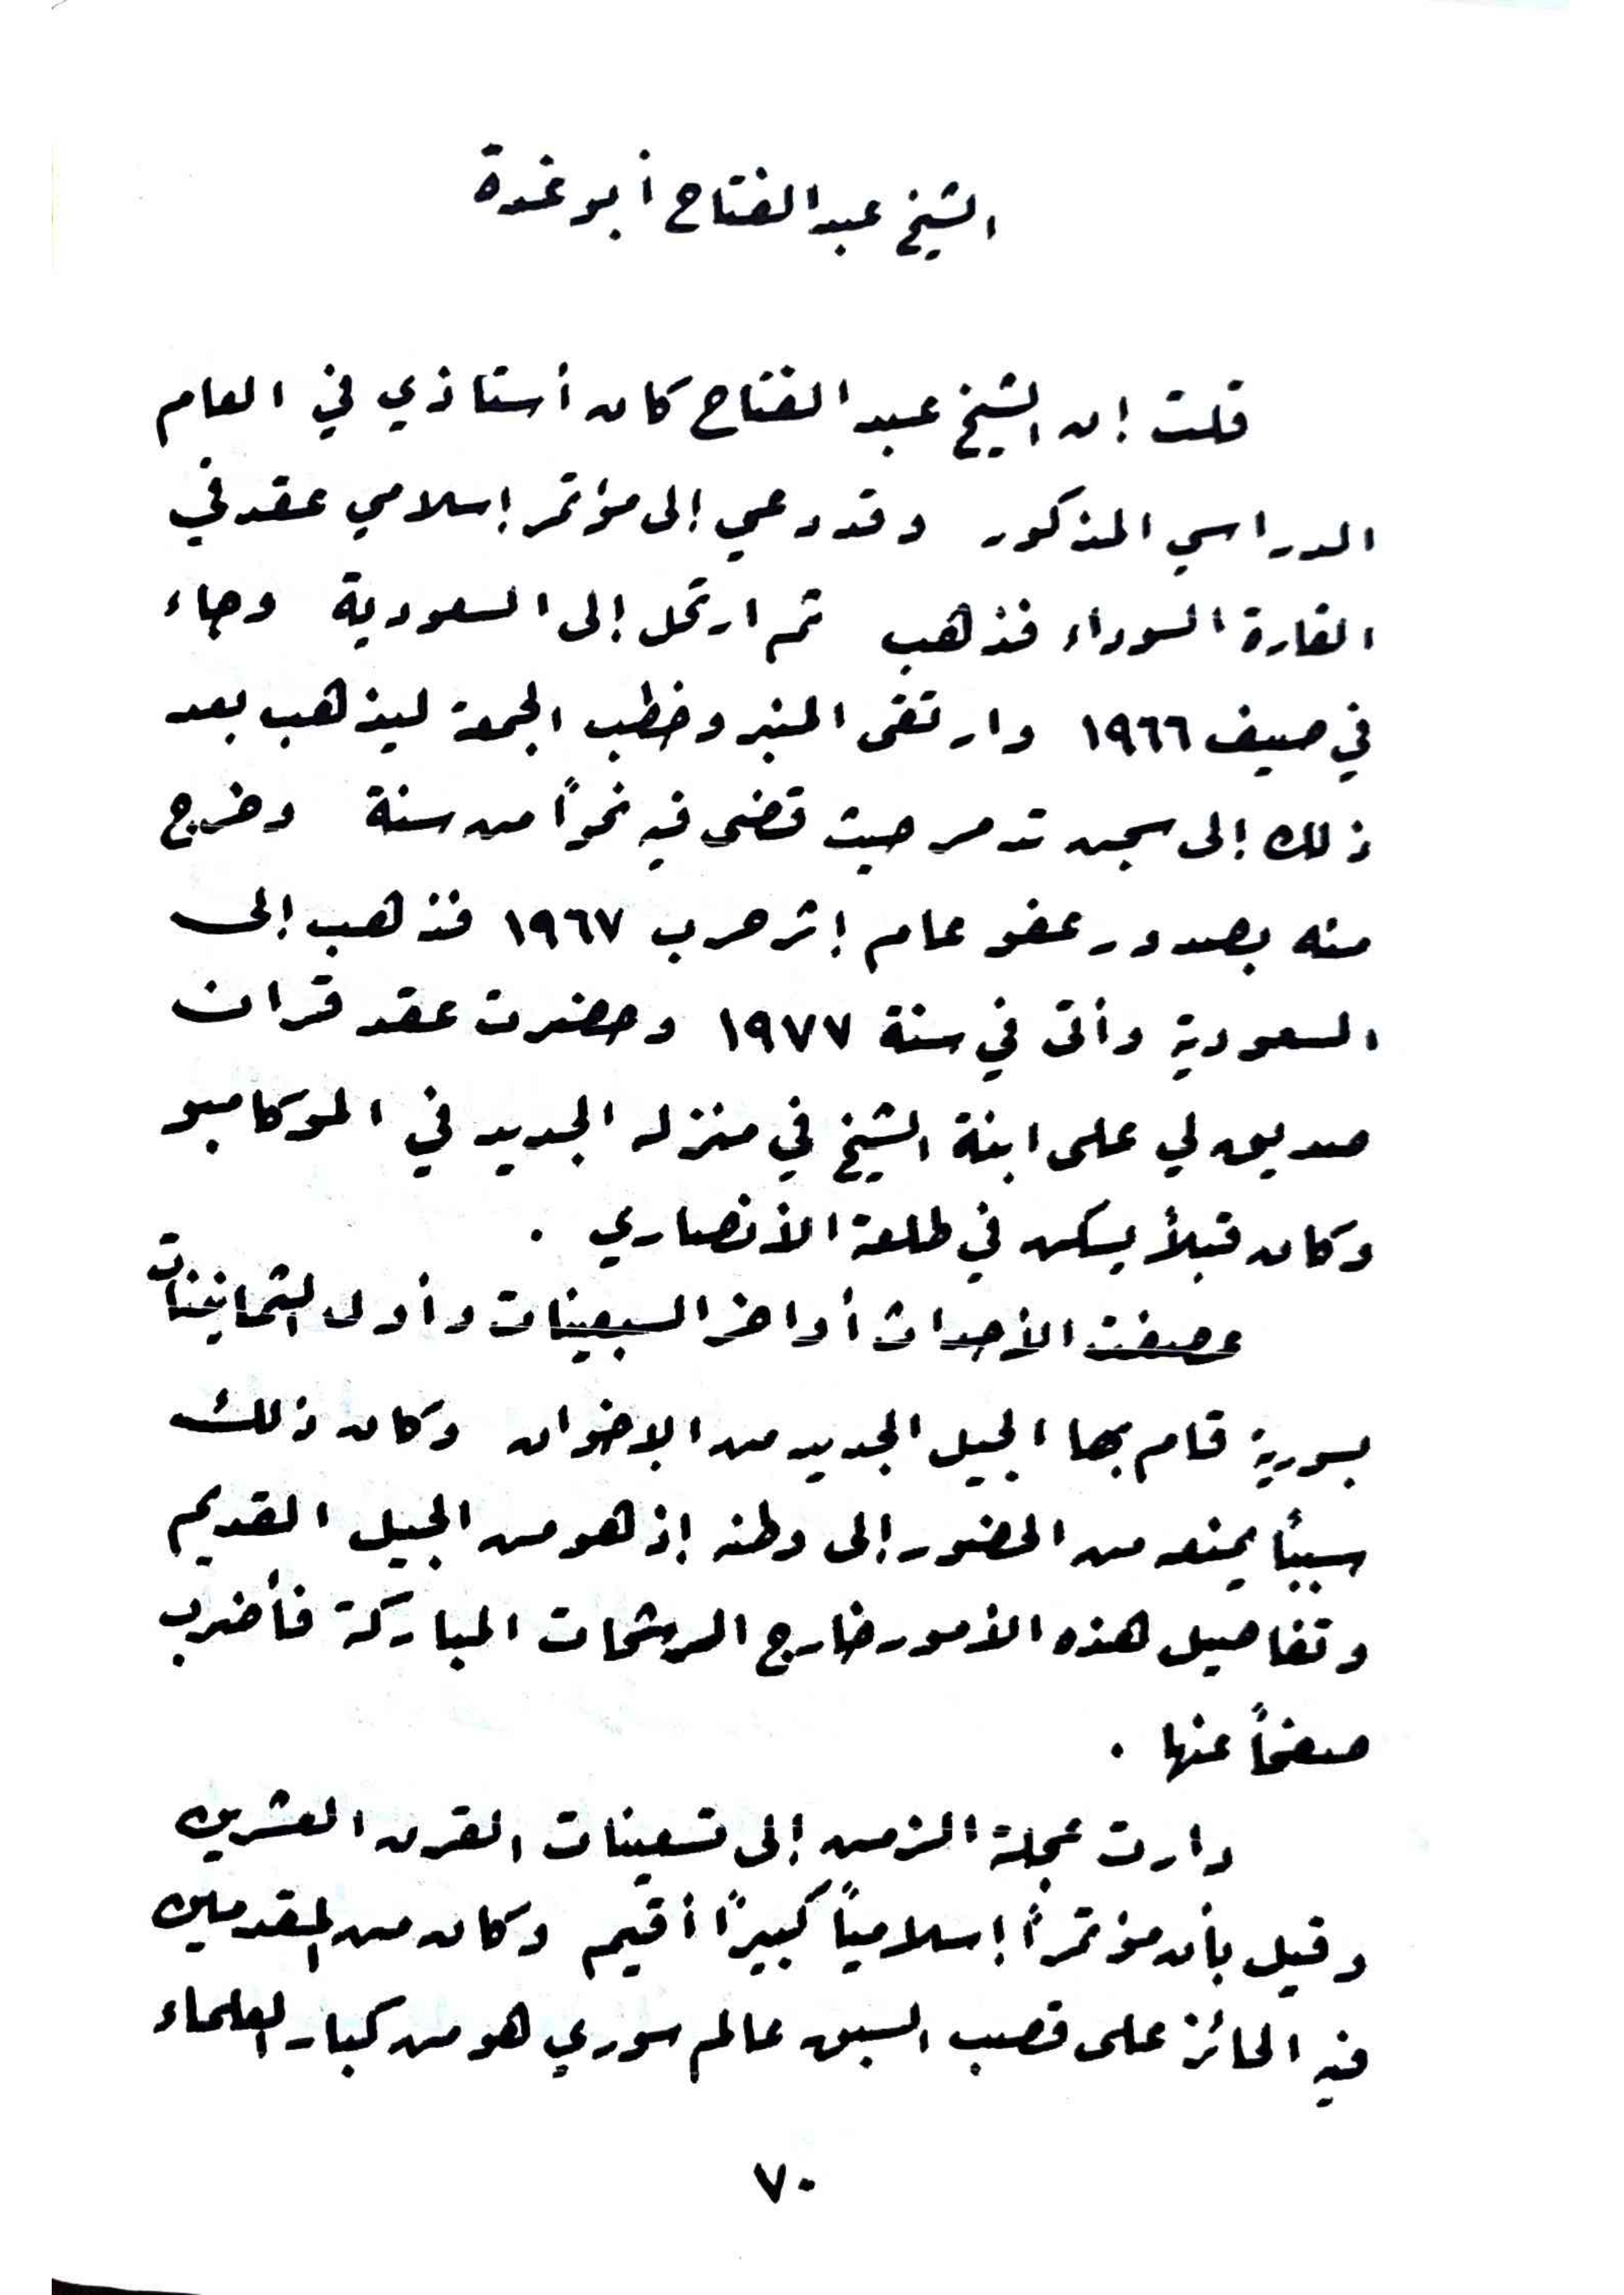 الشيخ عبد الفتاح أبو غدة
قلت إن الشيخ عبد الفتاح كان أستاذي في العام
الدراسي المذكور وقد دعي إلى مؤتمر إسلامي عقد في
القارة السوداء فذهب ثم ارتحل إلى السعودية وجاء
في صيف ١٩٦٦ وارتقى المنبر وخطب الجمعة ليذهب بعد
ذلك إلى سجن تدمر حيث قضى فيه نحواً من سنة وخرج
منه بصدور عفو عام إثر حرب ١٩٦٧ فذهب إلى
السعودية وأتى في سنة ١٩٧٧ وحضرت عقد قران
صديق لي على ابنة الشيخ في منزله الجديد في الموكامبو
وكان قبلاً يسكن في طلعة الأنصاري .
عصفت الأحداث أواخر السبعينات وأول الثمانينات
بسورية قام بها الجيل الجديد من الإخوان وكان ذلك
سبباً يمنعه من الحضور إلى وطنه إذ هو من الجيل القديم
وتفاصيل هذه الأمور خارج الرشحات المباركة فأضرب
صفحاً عنها .
دارت عجلة الزمن إلى تسعينات القرن العشرين
وقيل بأن مؤتمراً إسلامياً كبيراً أقيم وكان من المقدمين
فيه الحائز على قصب السبق عالم سوري هو من كبار العلماء
٧٠